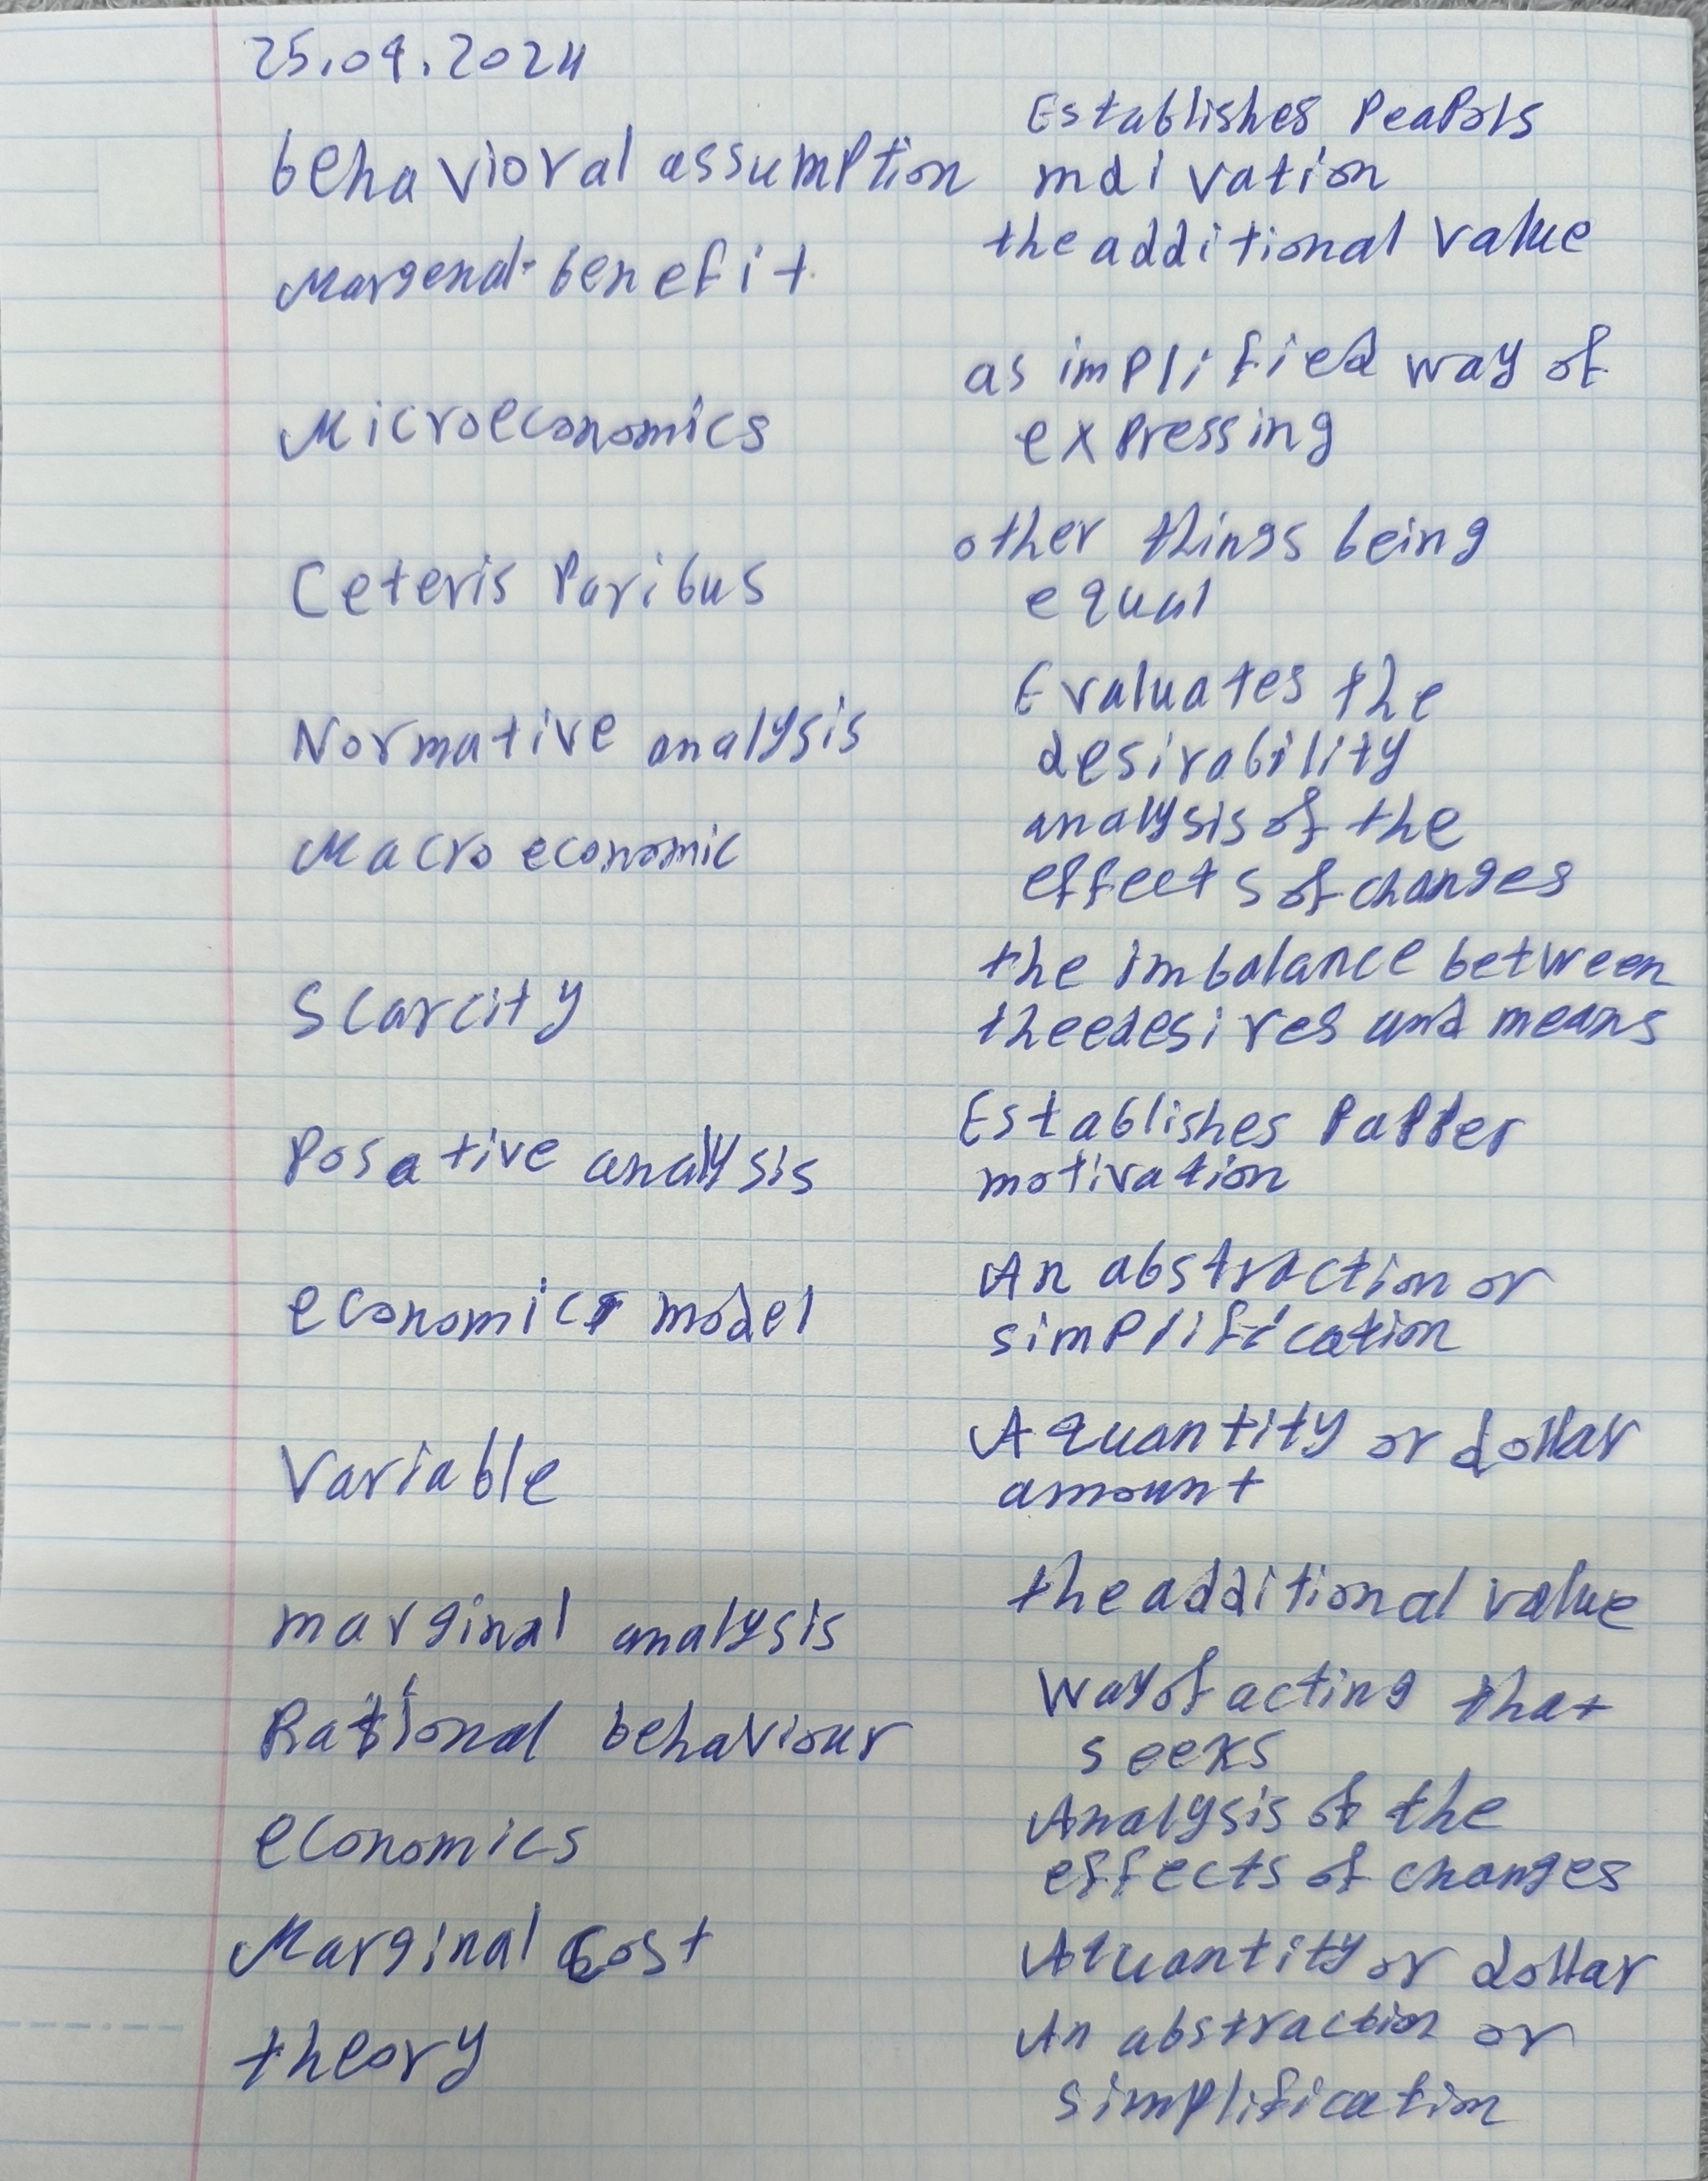 25.09.2024
Establishes PeaPols
behavioral assumption mdivation
the additional value
Margenal benefit
as implified way of
Microeconomics expressing
other things being
Ceteris Paribus equal
Evaluates the
Normative analysis desirability
analysis of the
Macro economic effects of changes
the imbalance between
Scarcity theedesires and means
Establishes Papper
Posative analysis motivation
An abstraction or
economic model simplification
A quantity or dollar
Variable amount
the additional value
marginal analysis
Way of acting that
Rational behaviour seeks
Analysis of the
economics effects of changes
Marginal Cost A quantity or dollar
An abstraction or
theory simplification